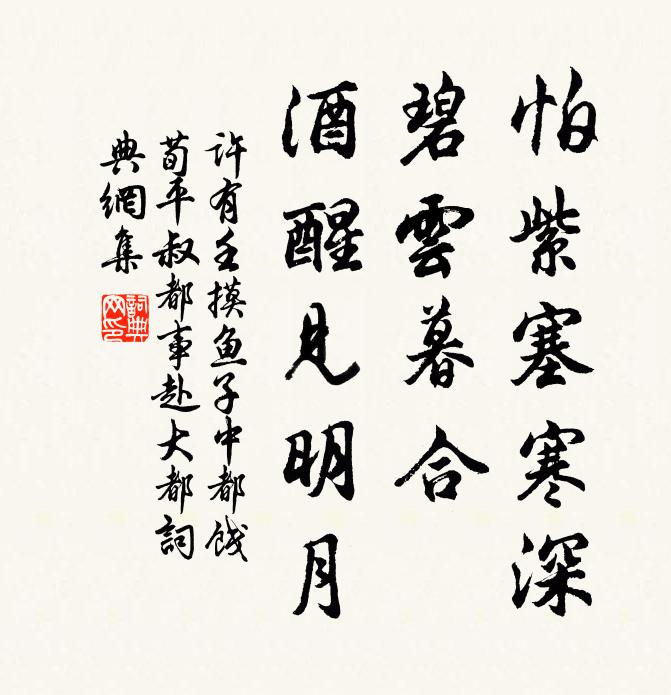 怕紫塞寒深
碧雲暮合
酒醒見明月
許有壬摸鱼子中都餞
荀平叔都事赴大都詞
典網集
詞典
网印